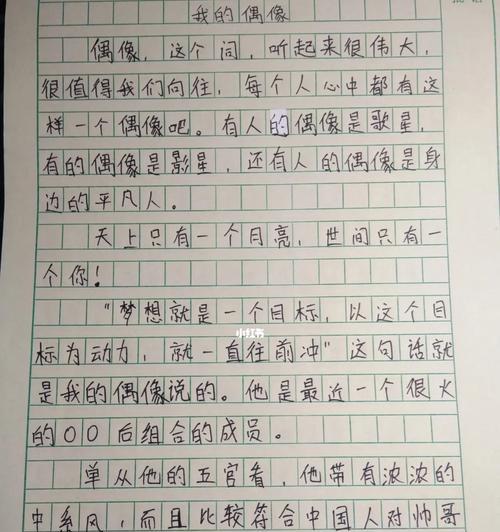 我的偶像
偶像，这个词，听起来很伟大，
很值得我们向往，每个人心中都有这
样一个偶像吧。有人的偶像是歌星，
有的偶像是影星，还有人的偶像是身
边的平凡人。
天上只有一个月亮，世间只有一
个你！
"梦想就是一个目标，以这个目
小红书
标为动力，就一直往前冲"这句话就
是我的偶像说的。他是最近一个很火
的00后组合的成员。
单从他的五官看，他带有浓浓的
中系风，而且比较符合中国人对帅哥